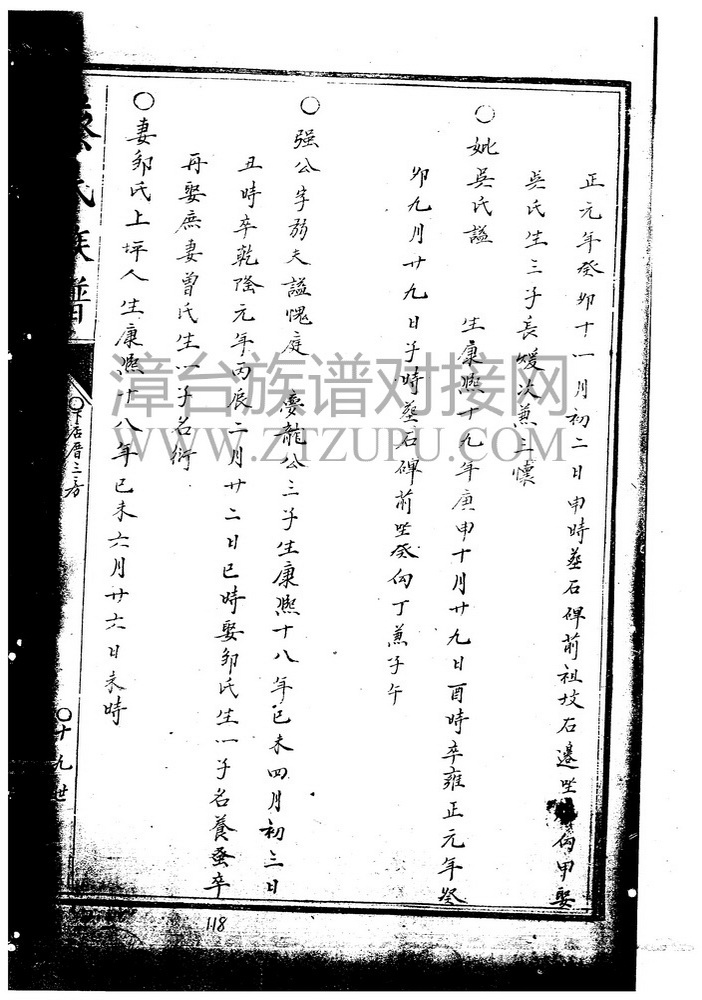 正元年癸卯十一月初二日申時塟石碑前祖坟石邊坐 向甲娶
吳氏生三子長媛次蒹三懷
○妣吳氏謚 生康熙十九年庚申十月廿九日酉時卒雍正元年癸
卯九月廿九日子時塟石碑前坐癸向丁蒹子午
○强公字弱夫謚愧庭 慶龍公三子生康熙十八年已未四月初三日
丑時卒乾隆元年丙辰二月廿二日已時娶邹氏生一子名養蚤卒
再娶庶妻曾氏生一子名衍
○妻邹氏上坪人生康熙十八年已未六月廿六日未時
氏族譜
○下店厝三房
○十九世
118
漳台族谱对接网
WWW.ZTZUPU.COM